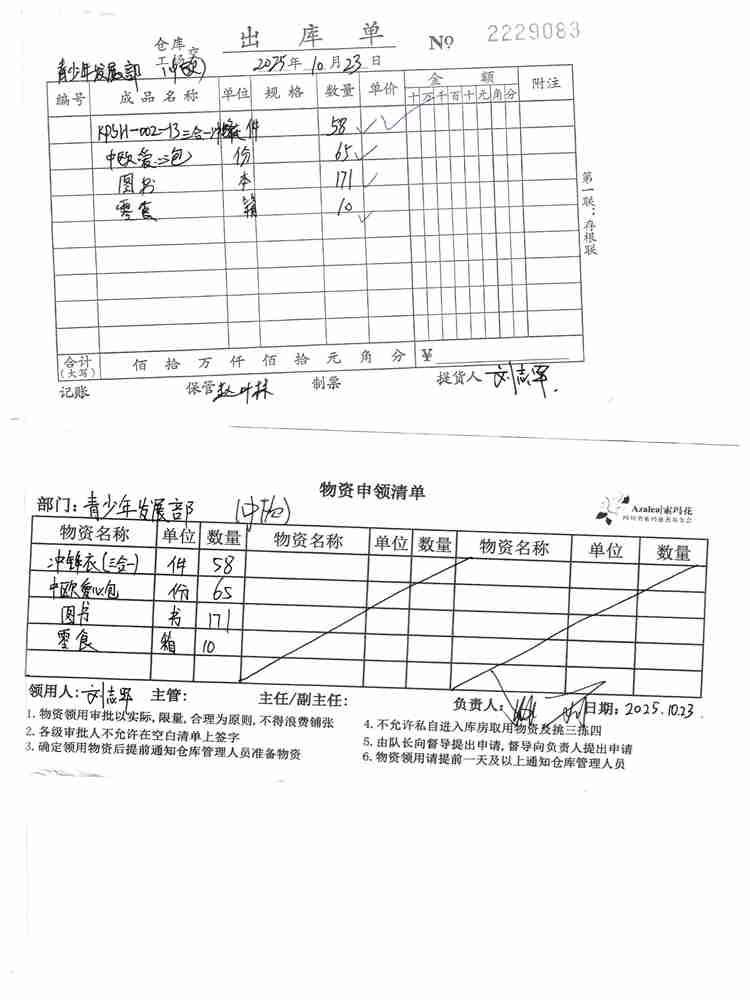 出 库 单
№ 2229083
仓库
青少年发展部 (中欧)
2025年10月23日
编号 成品名称 单位 规格 数量 单价 金额 附注
十万千百十元角分
KPSH-002-13三合一冲锋衣 件 58
中欧爱心包 份 65
图书 本 171
零食 箱 10
第一联:存根联
合计(大写) 佰 拾 万 仟 佰 拾 元 角 分 ¥
记账 保管 赵叶林 制票 提货人 刘志军
物资申领清单
部门:青少年发展部 (中欧)
Azalea|索玛花
四川省索玛慈善基金会
物资名称 单位 数量 物资名称 单位 数量 物资名称 单位 数量
冲锋衣(三合一) 件 58
中欧爱心包 份 65
图书 书 171
零食 箱 10
领用人:刘志军 主管: 主任/副主任: 负责人: 日期:2025.10.23
1.物资领用审批以实际,限量,合理为原则,不得浪费铺张
2.各级审批人不允许在空白清单上签字
3.确定领用物资后提前通知仓库管理人员准备物资
4.不允许私自进入库房取用物资及挑三拣四
5.由队长向督导提出申请,督导向负责人提出申请
6.物资领用请提前一天及以上通知仓库管理人员